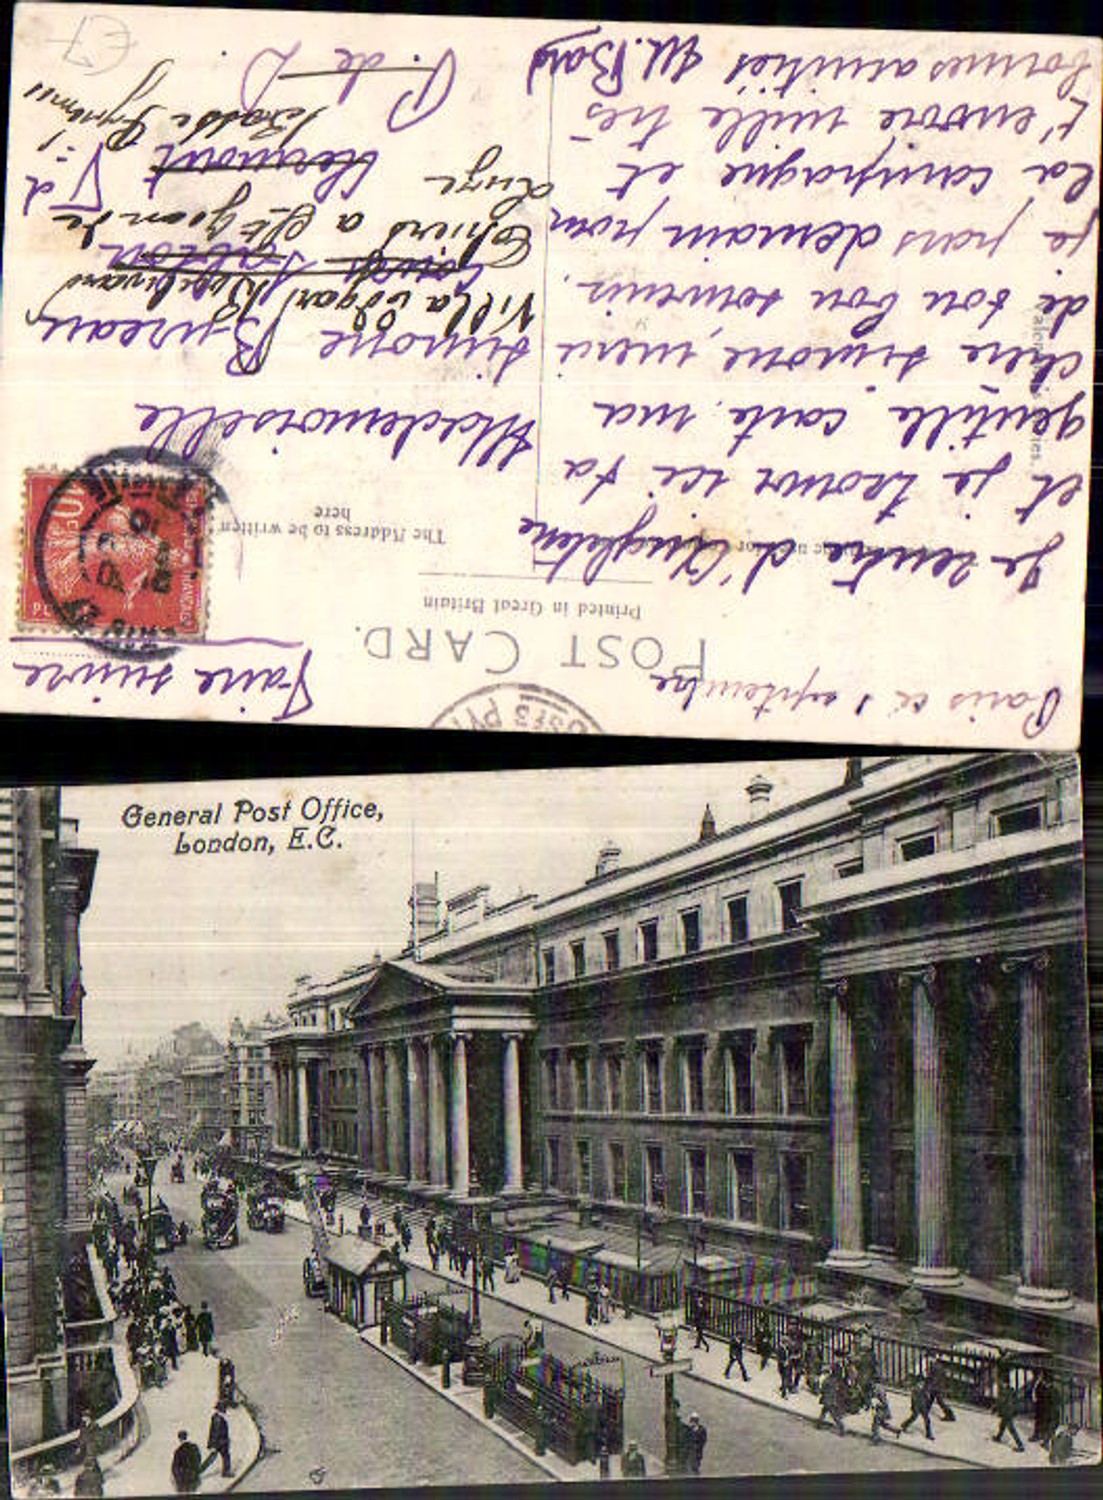 Paris ce 1 septembre
Faire suivre
POST CARD.
Printed in Great Britain
The Address to be written
here
Je rentre d'Angleterre
et je trouve ici ta
gentille carte, ma
chère Simone, merci
de ton bon souvenir.
Je pars demain pour
la campagne et
t'envoie mille très
bonnes amitiés M. Bard
Mademoiselle
Simone Bureau
Villa Edgard Boulevard
Cahiers a St Jean de
Luz
Clermont
Basses Pyrénées
P. de D
£7
General Post Office,
London, E.C.